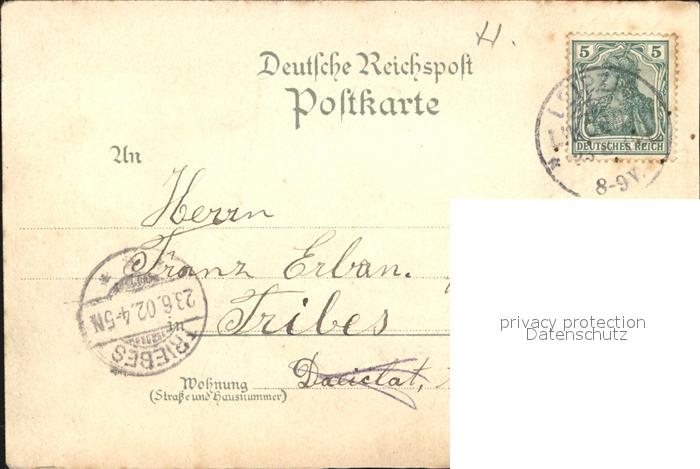 H.
Deutsche Reichspost
Postkarte
5 5
DEUTSCHES REICH
8-9V.
An
Herrn
Franz Erban.
in Tribes
TRIEBES
23.6.02.4-5N
Wohnung
(Straße und Hausnummer)
privacy protection
Datenschutz